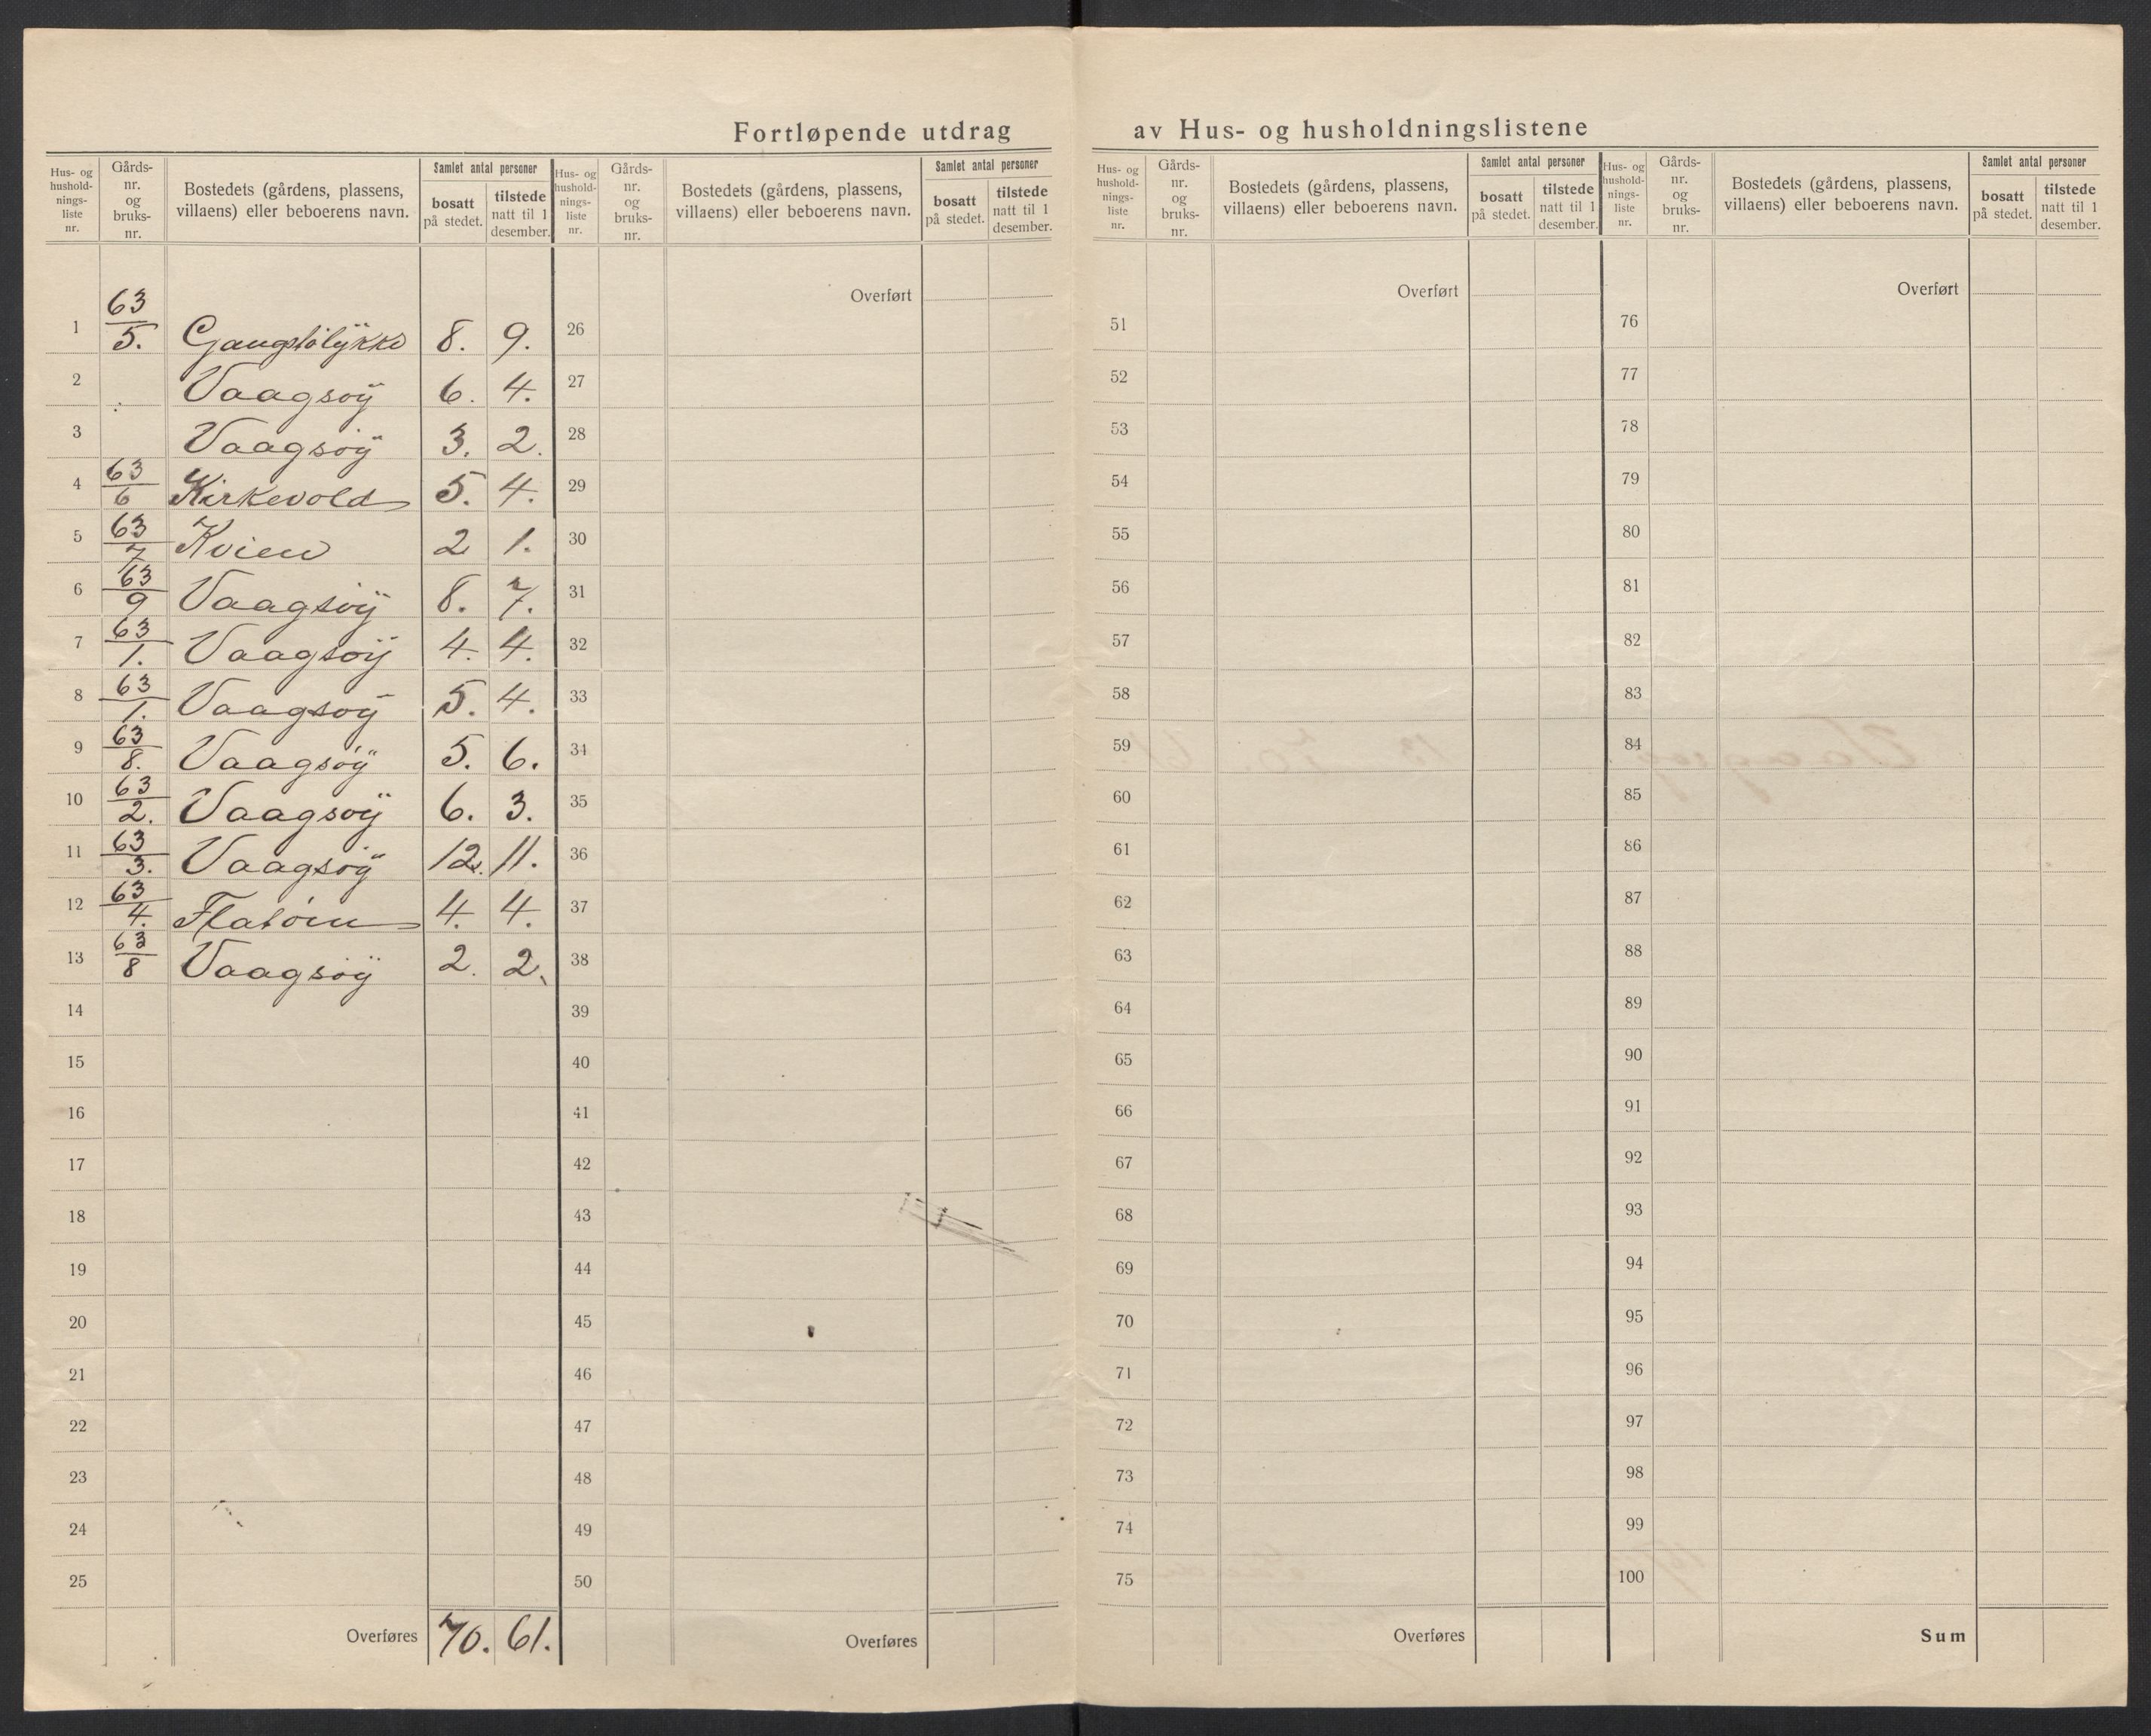 Fortløpende utdrag av Hus- og husholdningslistene
Hus- og hushold- nings- liste nr. | Gårds- nr. og bruks- nr. | Bostedets (gårdens, plassens, villaens) eller beboerens navn. | Samlet antal personer | bosatt på stedet. | tilstede natt til 1 desember.
Hus- og hushold- nings- liste nr. | Gårds- nr. og bruks- nr. | Bostedets (gårdens, plassens, villaens) eller beboerens navn. | Samlet antal personer | bosatt på stedet. | tilstede natt til 1 desember.
Hus- og hushold- nings- liste nr. | Gårds- nr. og bruks- nr. | Bostedets (gårdens, plassens, villaens) eller beboerens navn. | Samlet antal personer | bosatt på stedet. | tilstede natt til 1 desember.
Hus- og hushold- nings- liste nr. | Gårds- nr. og bruks- nr. | Bostedets (gårdens, plassens, villaens) eller beboerens navn. | Samlet antal personer | bosatt på stedet. | tilstede natt til 1 desember.
Overført Overført Overført
1 63/5. 8. 9. 26 51 76
2 Vaagsöÿ 6. 4. 27 52 77
3 Vaagsöÿ 3. 2. 28 53 78
4 63/6 Kirkevold 5. 4. 29 54 79
5 63/7 Kvien 2 1. 30 55 80
6 63/9 Vaagsöÿ 8. 7. 31 56 81
7 63/1. Vaagsöÿ 4. 4. 32 57 82
8 63/1. Vaagsöÿ 5. 4. 33 58 83
9 63/8. Vaagsöÿ 5. 6. 34 59 84
10 63/2. Vaagsöÿ 6. 3. 35 60 85
11 63/3. Vaagsöÿ 12. 11. 36 61 86
12 63/4. Flatöen 4. 4. 37 62 87
13 63/8 Vaagsöÿ 2. 2. 38 63 88
14 39 64 89
15 40 65 90
16 41 66 91
17 42 67 92
18 43 68 93
19 44 69 94
20 45 70 95
21 46 71 96
22 47 72 97
23 48 73 98
24 49 74 99
25 50 75 100
Overføres 70. 61. Overføres Overføres Sum